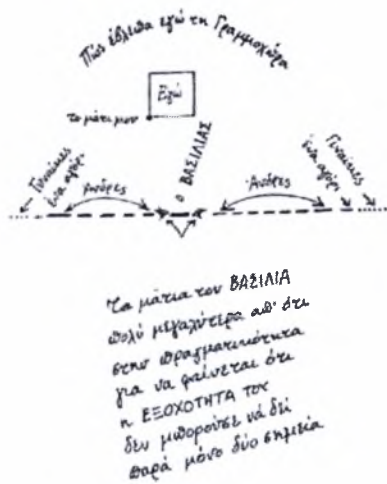 Πώς έβλεπα εγώ τη Γραμμοχώρα
Εγώ
το μάτι μου
Ο ΒΑΣΙΛΙΑΣ
Γυναίκες
ένα αγόρι
Άνδρες
Άνδρες
Γυναίκες
ένα αγόρι
Τα μάτια του ΒΑΣΙΛΙΑ
πολύ μεγαλύτερα απ' ότι
στην πραγματικότητα
για να φαίνεται ότι
η ΕΞΟΧΟΤΗΤΑ του
δεν μπορούσε νά δεί
παρά μόνο δύο σημεία